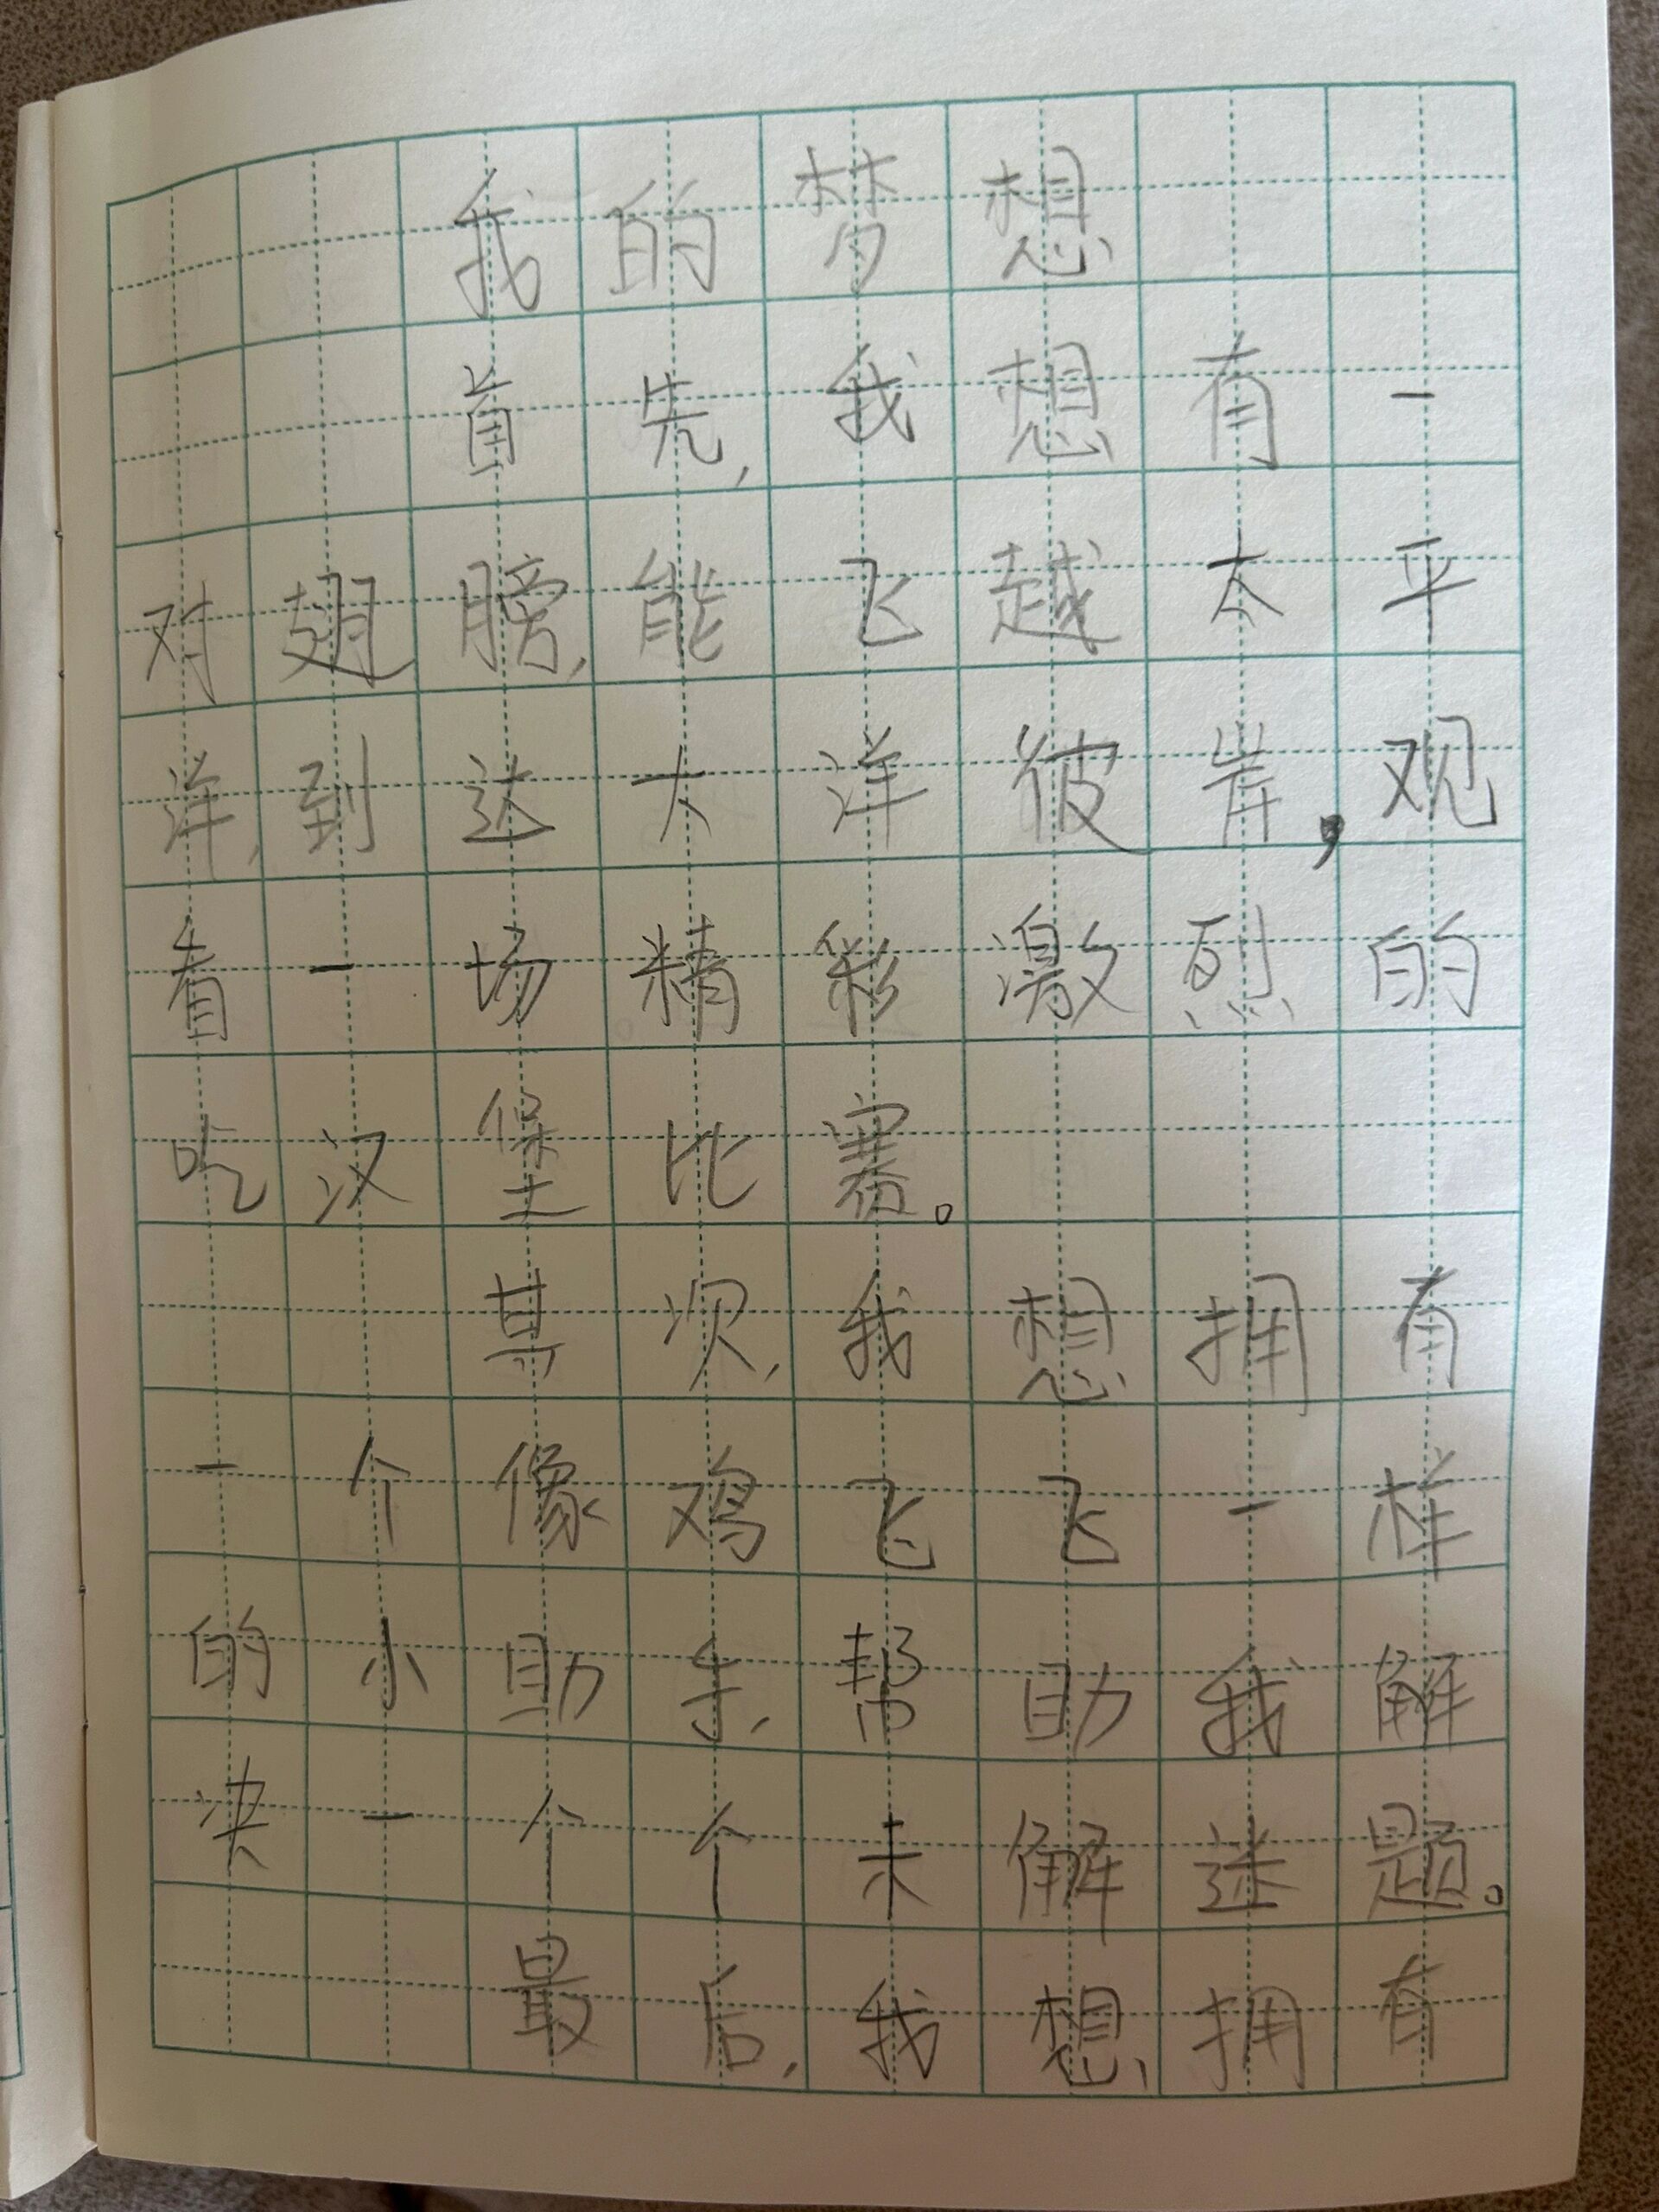 我的梦想
首先,我想有一
对翅膀,能飞越太平
洋,到达大洋彼岸,观
看一场精彩激烈的
吃汉堡比赛。
其次,我想拥有
一个像鸡飞飞一样
的小助手,帮助我解
决一个个未解迷题。
最后,我想拥有